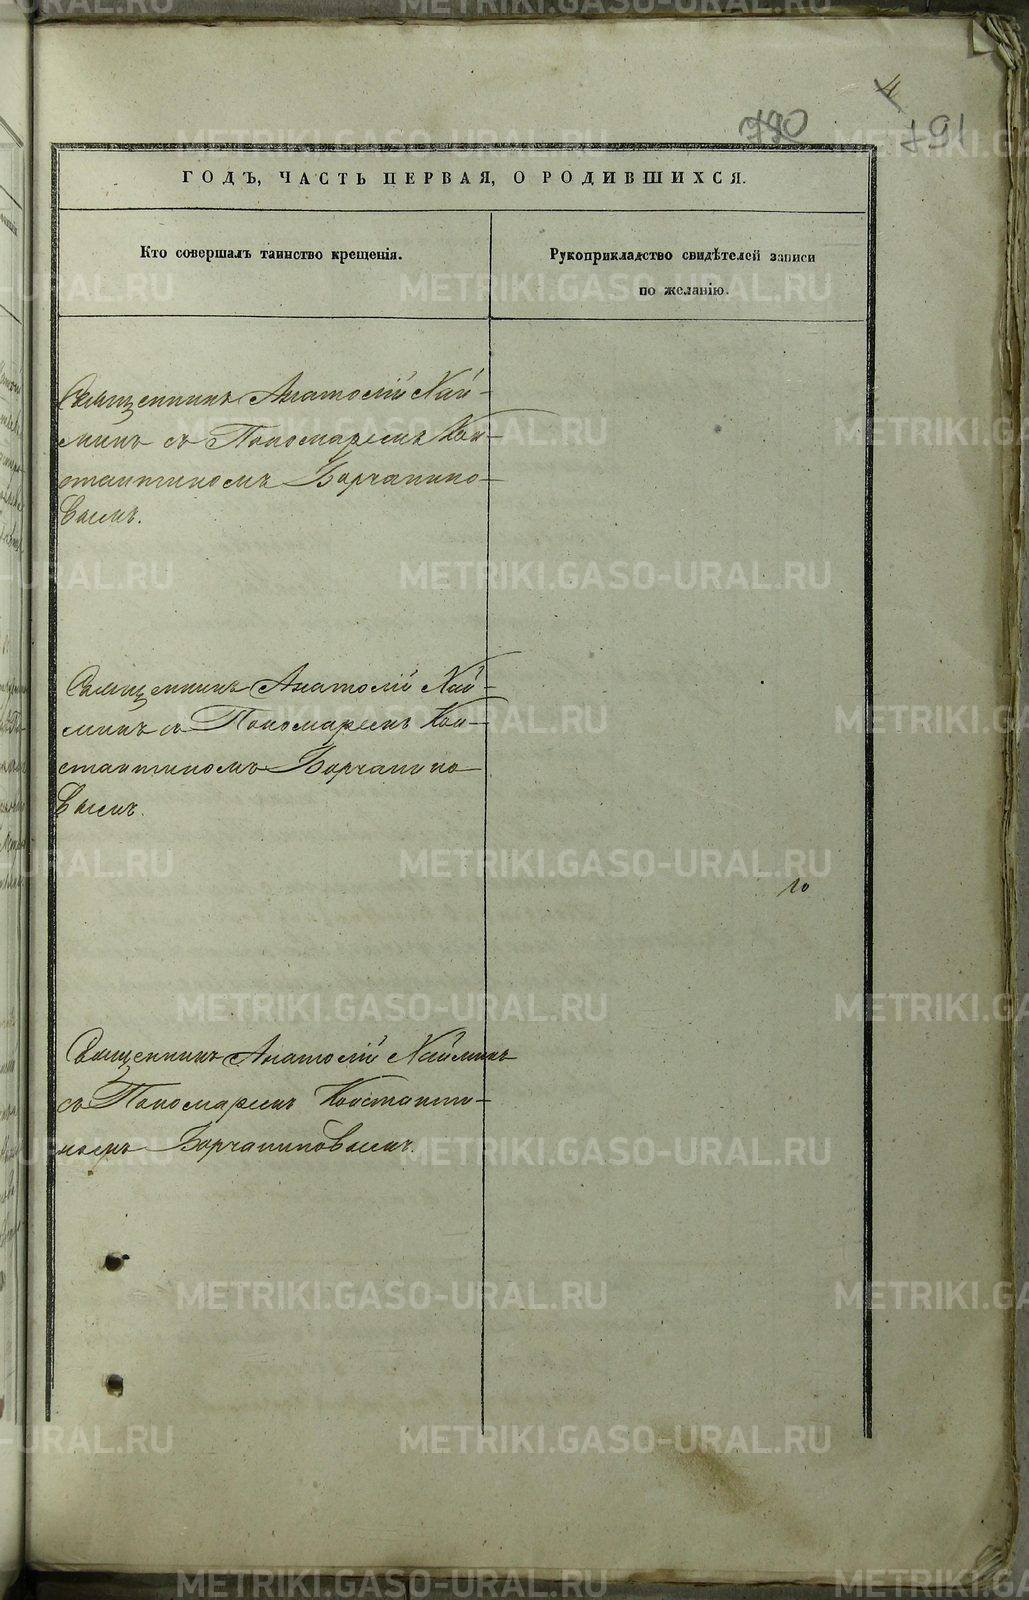 4
790
791
ГОДЪ, ЧАСТЬ ПЕРВАЯ, О РОДИВШИХСЯ.
Кто совершалъ таинство крещенія.
Рукоприкладство свидѣтелей записи
по желанію.
Священникъ Анатолій Хай-
минъ съ Пономаремъ Кон-
стантиномъ Борчанино-
вымъ.
Священникъ Анатолій Хай-
минъ съ Пономаремъ Кон-
стантиномъ Борчанино
вымъ.
Священникъ Анатолій Хайминъ
съ Пономаремъ Константи-
номъ Борчаниновымъ.
METRIKI.GASO-URAL.RU